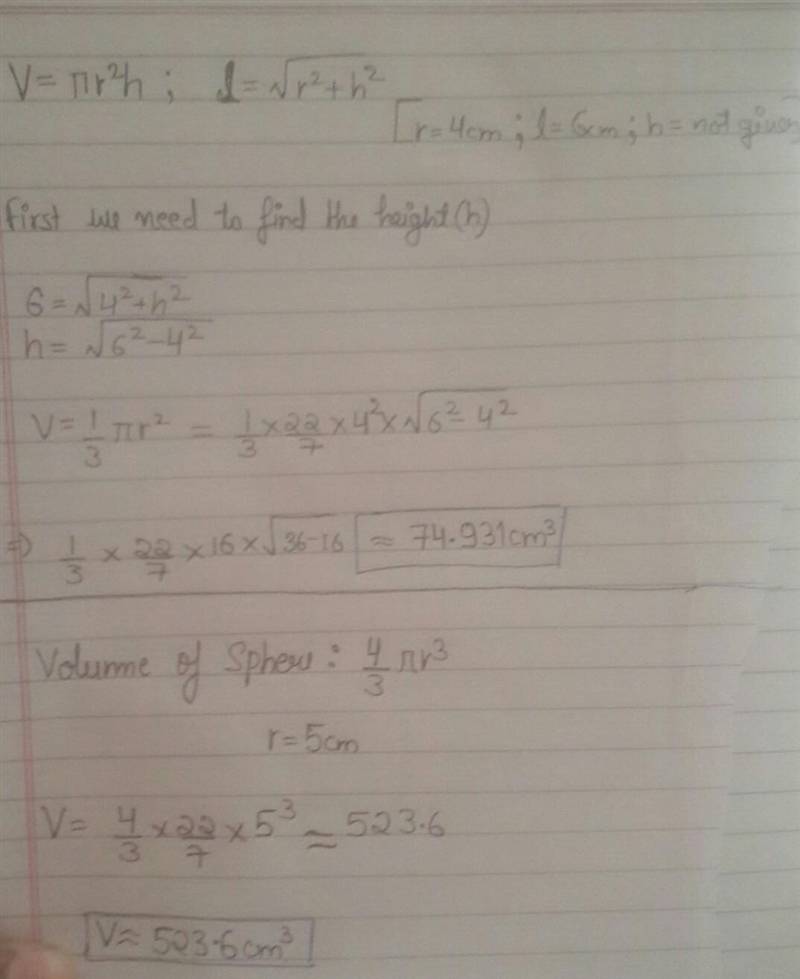 V = πr²h ; l = √(r²+h²)
[r=4cm ; l=6cm ; h= not given
first we need to find the height(h)
6 = √(4²+h²)
h = √(6²-4²)
V = 1/3 πr² = 1/3 × 22/7 × 4² × √(6²-4²)
⇒ 1/3 × 22/7 × 16 × √(36-16) ≈ 74.931cm³
Volunme of Sphere : 4/3 πr³
r=5cm
V = 4/3 × 22/7 × 5³ ≃ 523.6
V ≈ 523.6cm³